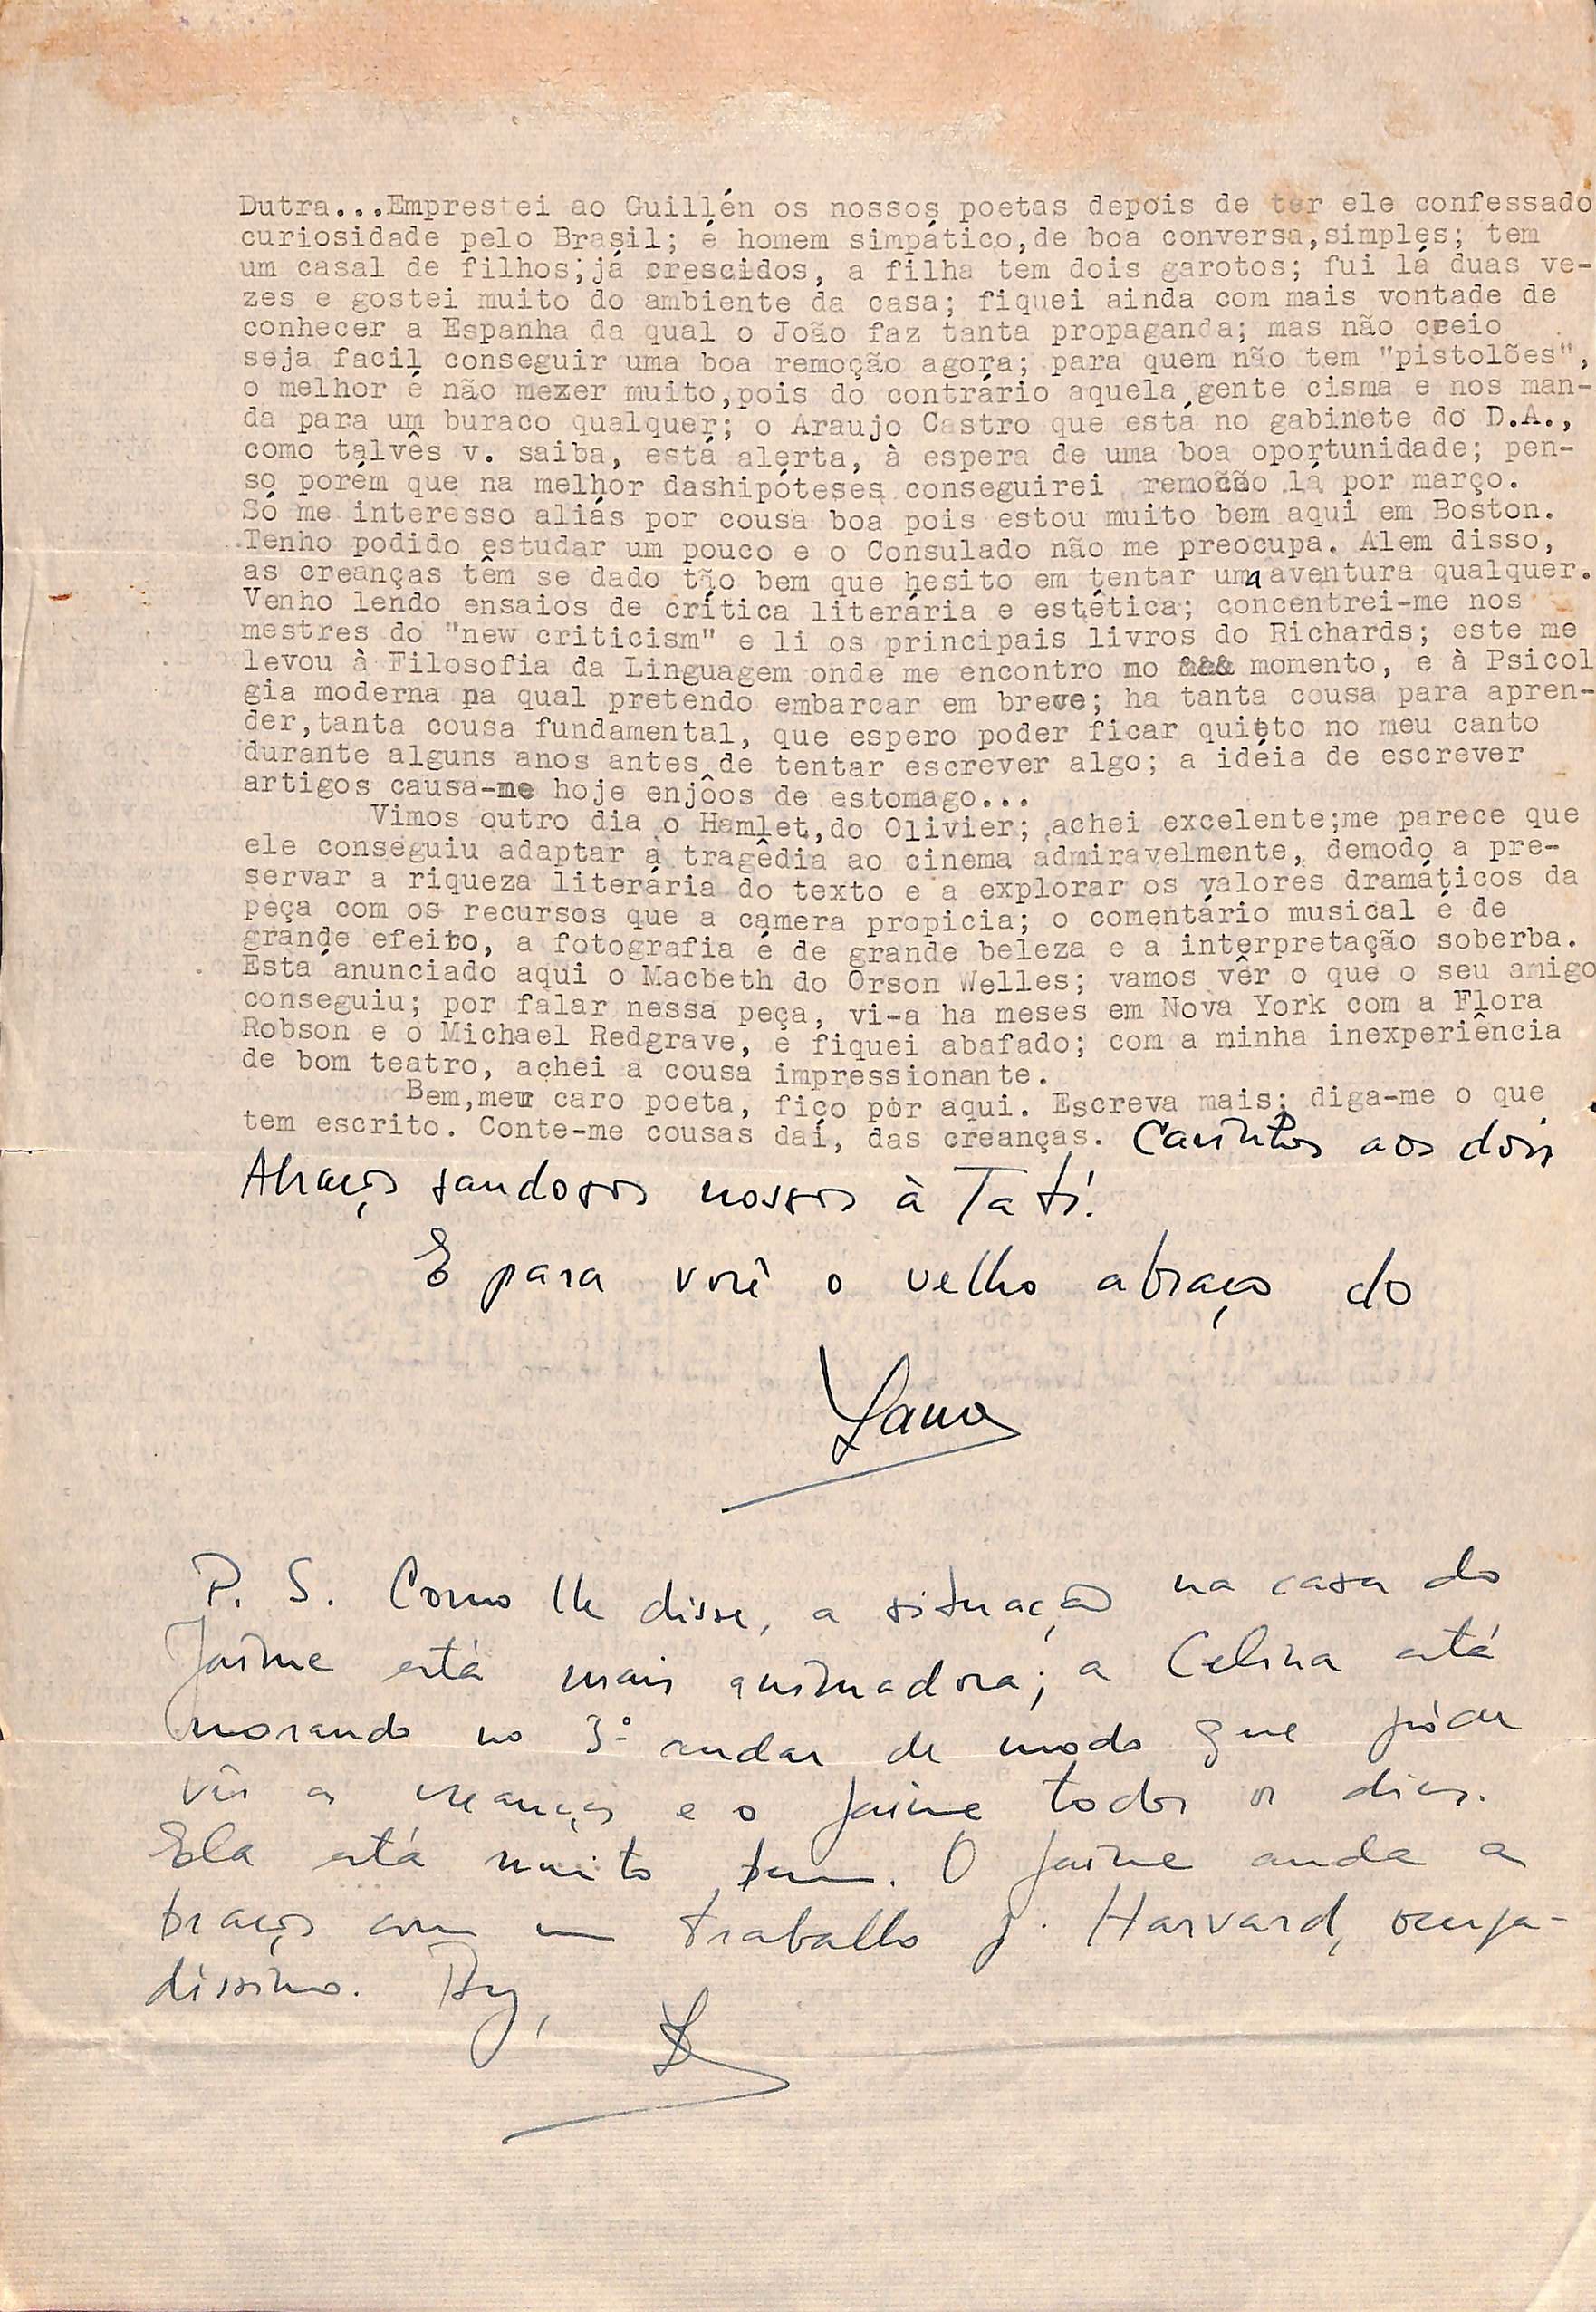 Dutra...Emprestei ao Guillén os nossos poetas depois de ter ele confessado
curiosidade pelo Brasil; é homem simpático,de boa conversa,simples; tem
um casal de filhos;já crescidos, a filha tem dois garotos; fui lá duas ve-
zes e gostei muito do ambiente da casa; fiquei ainda com mais vontade de
conhecer a Espanha da qual o João faz tanta propaganda; mas não creio
seja facil conseguir uma boa remoção agora; para quem não tem "pistolões",
o melhor é não mexer muito,pois do contrário aquela gente cisma e nos man-
da para um buraco qualquer; o Araujo Castro que está no gabinete do D.A.,
como talvês v. saiba, está alerta, à espera de uma boa oportunidade; pen-
so porém que na melhor dashipóteses conseguirei remoção lá por março.
Só me interesso aliás por cousa boa pois estou muito bem aqui em Boston.
Tenho podido estudar um pouco e o Consulado não me preocupa. Alem disso,
as creanças têm se dado tão bem que hesito em tentar uma aventura qualquer.
Venho lendo ensaios de crítica literária e estética; concentrei-me nos
mestres do "new criticism" e li os principais livros do Richards; este me
levou à Filosofia da Linguagem onde me encontro no &&& momento, e à Psicol
gia moderna na qual pretendo embarcar em breve; ha tanta cousa para apren-
der,tanta cousa fundamental, que espero poder ficar quieto no meu canto
durante alguns anos antes de tentar escrever algo; a idéia de escrever
artigos causa-me hoje enjôos de estomago...
Vimos outro dia o Hamlet,do Olivier; achei excelente;me parece que
ele conseguiu adaptar à tragêdia ao cinema admiravelmente, demodo a pre-
servar a riqueza literária do texto e a explorar os valores dramáticos da
peça com os recursos que a câmera propicia; o comentário musical é de
grande efeito, a fotografia é de grande beleza e a interpretação soberba.
Está anunciado aqui o Macbeth do Orson Welles; vamos vêr o que o seu amigo
conseguiu; por falar nessa peça, vi-a ha meses em Nova York com a Flora
Robson e o Michael Redgrave, e fiquei abafado; com a minha inexperiência
de bom teatro, achei a cousa impressionante.
Bem,meu caro poeta, fico por aqui. Escreva mais; diga-me o que
tem escrito. Conte-me cousas daí, das creanças. Carinhos aos dois
Abraços saudosos nossos à Tati!
E para você o velho abraço do
Lauro
P. S. Como lhe disse, a situação na casa do
Jaime está mais animadora; a Celina está
morando no 3º andar de modo que póde
vêr as creanças e o Jaime todos os dias.
Ela está muito bem. O Jaime anda a
braços com um trabalho p. Harvard, ocupa-
díssimo.
L